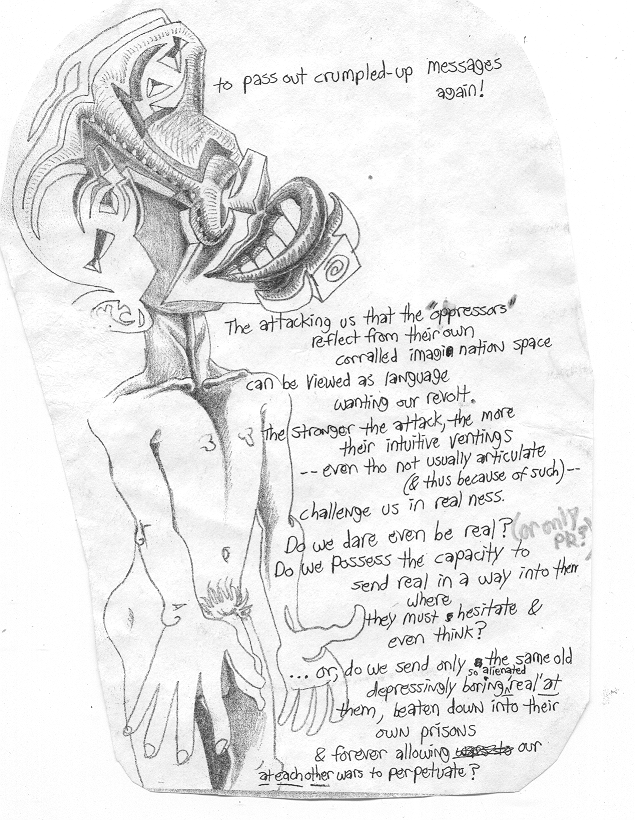 to pass out crumpled-up messages
again!
The attacking us that the "oppressors"
reflect from their own
corralled imagi nation space
can be viewed as language
wanting our revolt.
The stronger the attack, the more
their intuitive ventings
-- even tho not usually articulate
(& thus because of such) --
challenge us in real ness.
Do we dare even be real? (or only PR?)
Do we possess the capacity to
send real in a way into their
where
they must hesitate &
even think?
... or, do we send only the same old
depressively boring, so alienated 'real' at
them, beaten down into their
own prisons
& forever allowing our
at each other wars to perpetuate?